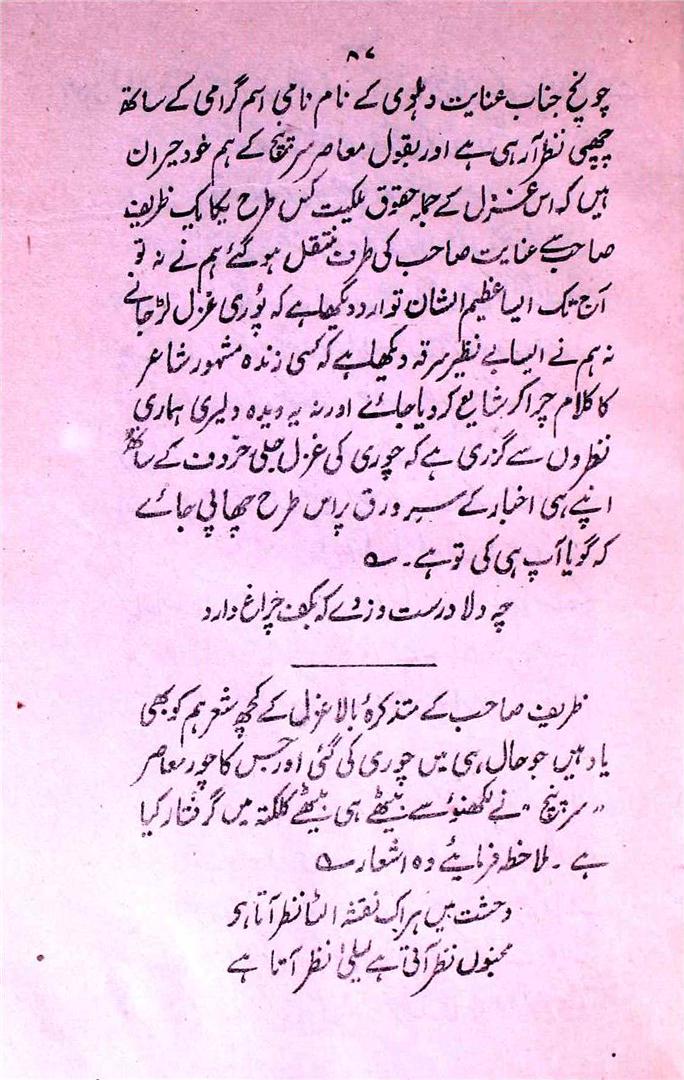 ۸۷
چونچ جناب عنایت دہلوی کے نام نامی اسم گرامی کے ساتھ
چھپی نظر آرہی ہے اور بقول معاصر سرپنچ کے ہم خود حیران
ہیں کہ اس غزل کے جملہ حقوق ملکیت کس طرح یکایک ظریف
صاحب سے عنایت صاحب کی طرف منتقل ہوگئے ہم نے نہ تو
آج تک ایسا عظیم الشان توارد دیکھا ہے کہ پُوری غزل لڑ جائے
نہ ہم نے ایسا بے نظیر سرقہ دیکھا ہے کہ کسی زندہ مشہور شاعر
کا کلام چرا کر شایع کر دیا جائے اور نہ یہ دیدہ دلیری ہماری
نظروں سے گزری ہے کہ چوری کی غزل جلی حروف کے ساتھ
اپنے ہی اخبار کے سرورق پر اس طرح چھاپی جائے
کہ گویا آپ ہی کی تو ہے۔ ؎
چہ دلاورست دزدے کہ بکف چراغ دارد
ظریف صاحب کے متذکرۂ بالا غزل کے کچھ شعر ہم کو بھی
یاد ہیں جو حال ہی میں چوری کی گئی اور جس کا چور معاصر
"سرپنچ" نے لکھنؤ سے بیٹھے ہی بیٹھے کلکتہ میں گرفتار کیا
ہے ۔ ملاحظہ فرمایئے وہ اشعار ؎
وحشت میں ہر اک نقشہ الٹا نظر آتا ہو
مجنوں نظر آتی ہے لیلیٰ نظر آتا ہے